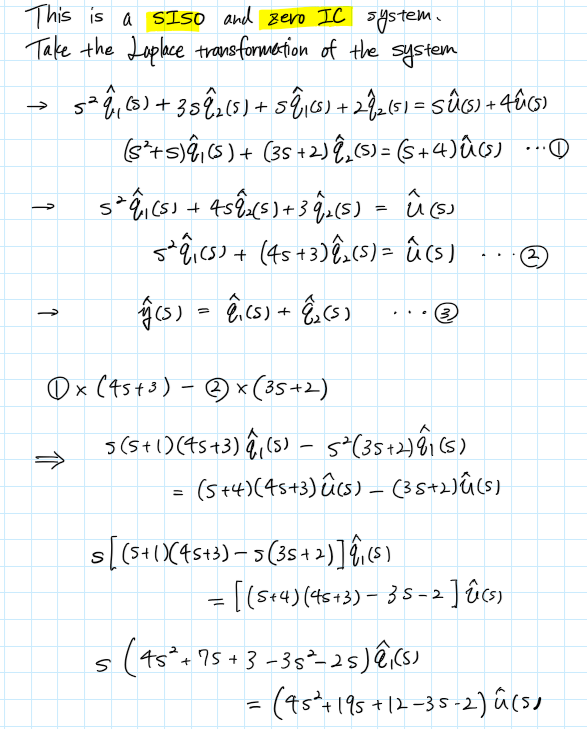 This is a SISO and zero IC system.
Take the Laplace transformation of the system
→ s² q̂₁(s) + 3s q̂₂(s) + s q̂₁(s) + 2 q̂₂(s) = s û(s) + 4 û(s)
(s²+s) q̂₁(s) + (3s+2) q̂₂(s) = (s+4) û(s) ... ①
→ s² q̂₁(s) + 4s q̂₂(s) + 3 q̂₂(s) = û(s)
s² q̂₁(s) + (4s+3) q̂₂(s) = û(s) ... ②
→ ŷ(s) = q̂₁(s) + q̂₂(s) ... ③
① × (4s+3) - ② × (3s+2)
⇒ s(s+1)(4s+3) q̂₁(s) - s²(3s+2) q̂₁(s)
= (s+4)(4s+3) û(s) - (3s+2) û(s)
s[(s+1)(4s+3) - s(3s+2)] q̂₁(s)
= [(s+4)(4s+3) - 3s - 2] û(s)
s (4s² + 7s + 3 - 3s² - 2s) q̂₁(s)
= (4s² + 19s + 12 - 3s - 2) û(s)